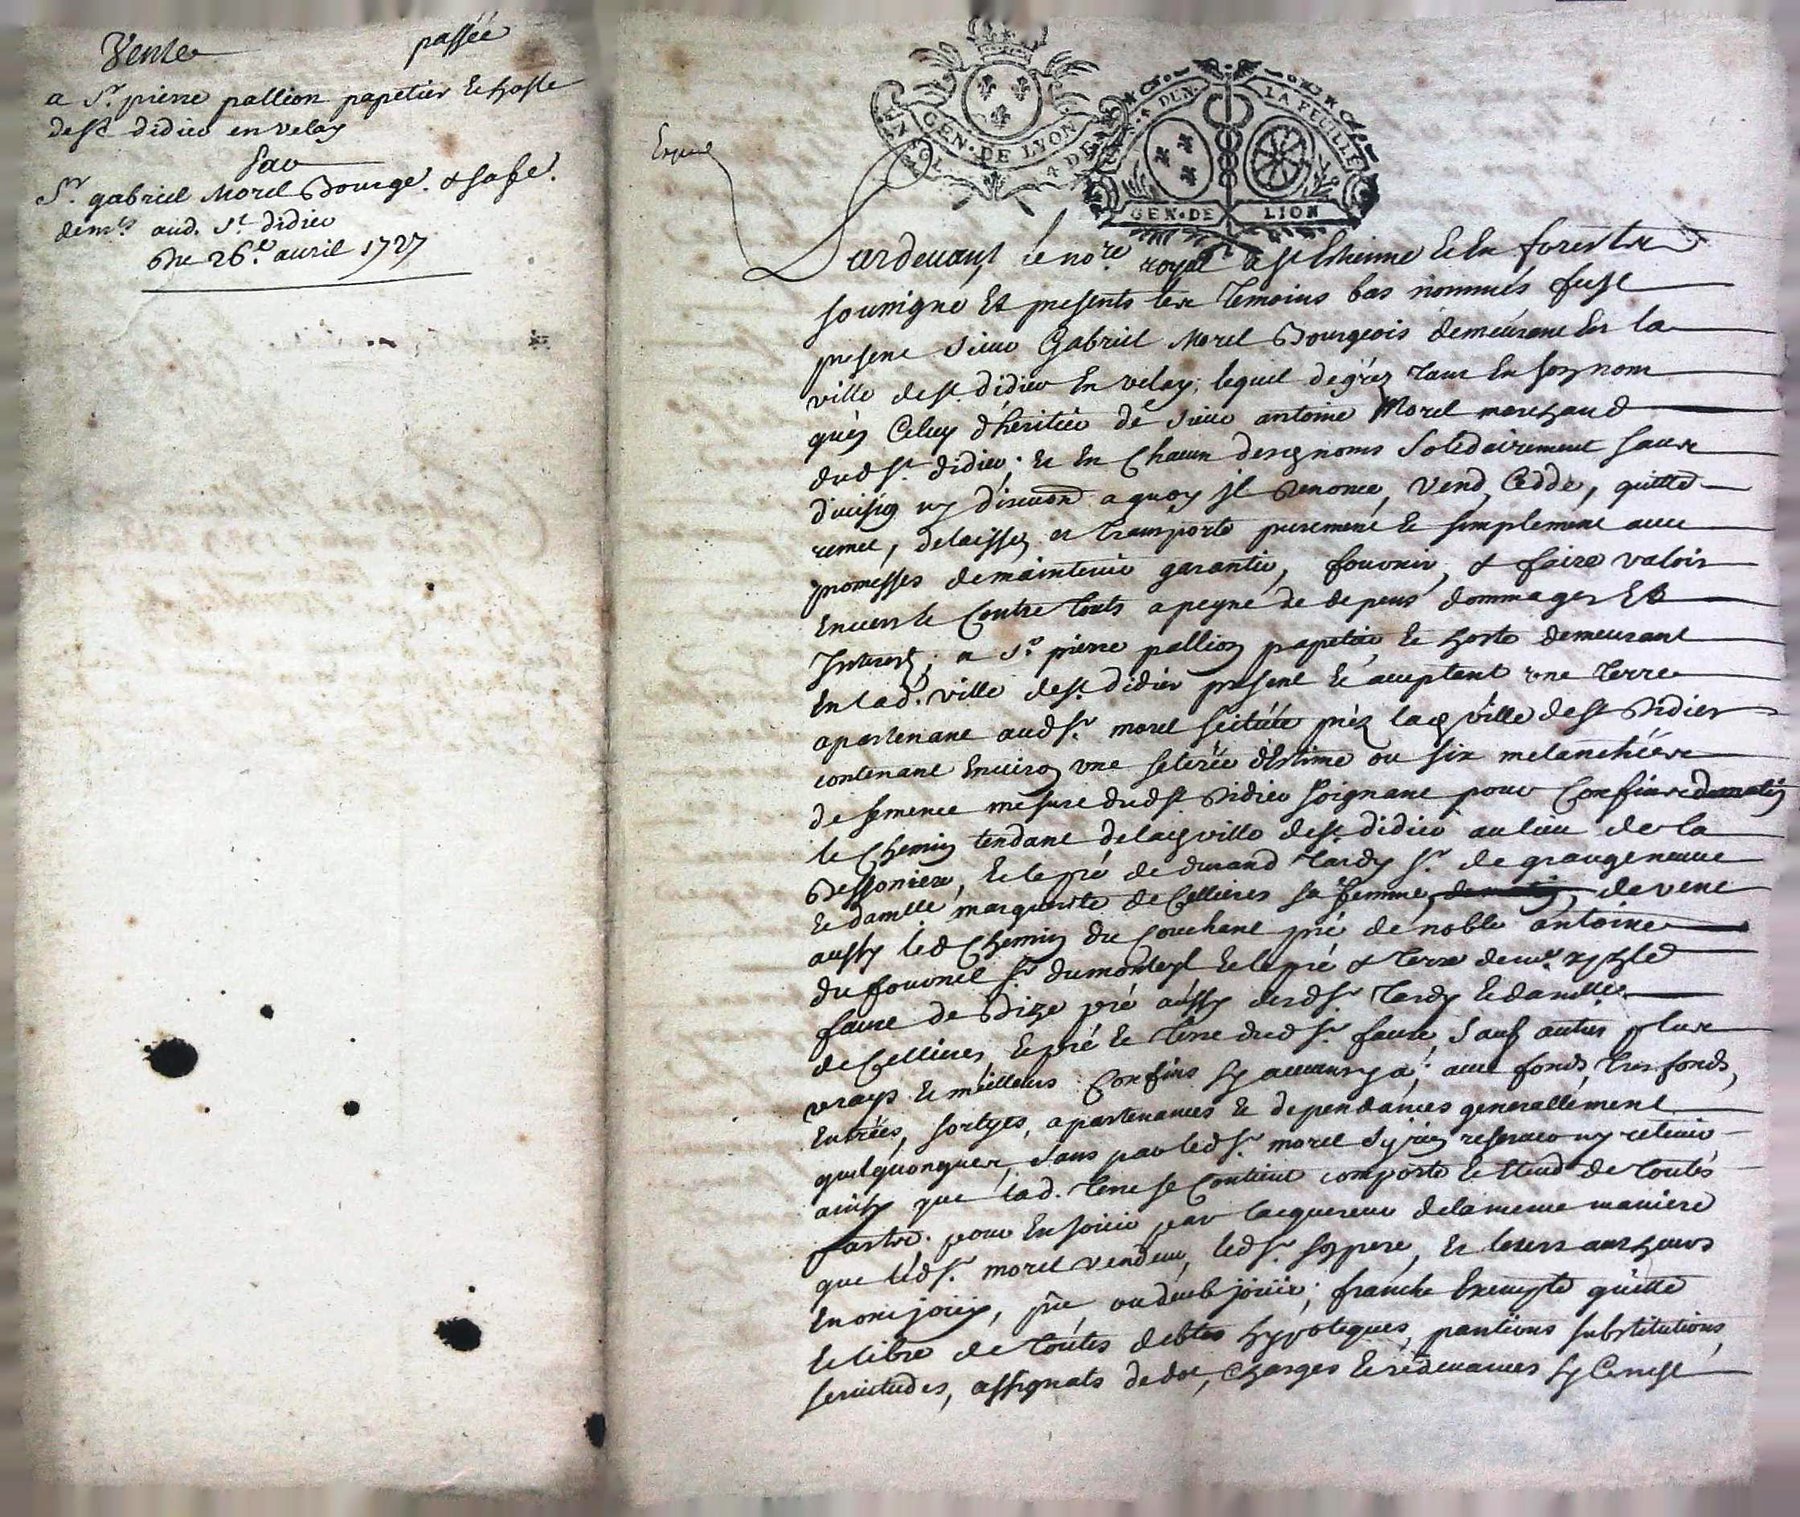 Vente passée
a Sr. pierre pallion papetier et hoste
de st didier en velay
par
Sr. gabriel Morel Bourge. & sa fe.
demt. aud. St didier
Du 26e. avril 1727
Expié
GEN. DE LYON
DEN.
LA FEUILLE
GEN. DE LION
Pardevant le nore. royal a st Etienne et En forest
soussigné Et presents les temoins bas nommés fust
present sieur Gabriel Morel Bourgeois demeurant En la
ville de st. didier En velay; lequel de grez tant En son nom
qu'en Celuy d'héritier de sieur antoine Morel marchand
dud st. didier; et En Chacun desd noms Solidairement sans
division ny discution a quoy il Renonce, Vend, Cedde, quitte
remet, delaisse et transporte purement et simplement avec
promesses de maintenir garantir, fournir, & faire valoir
Envers et Contre touts a peyne de depens dommages Et
Interest; a Sr. pierre pallion papetier et hoste demeurant
En lad. ville de st. didier present et acceptant une terre
apartenant aud sr. morel scituée prèz lad ville de st Didier
contenant Environ une seterée d'Estime ou six metanchées
de semence mesure dud st Didier joignant pour Confins de matin
le Chemin tendant de lad ville de st didier au lieu de la
Bessoniere, et le pré de durand tardy sr. de grangeneuve
et damlle marguerite de Cellieres sa femme, de vent
aussy led Chemin du Couchant pré de noble antoine
du fournel sr. dumonteyl et le pré & terre de
faure de Bize pré aussy desd sr. tardy et damlle
de Cellieres, et pré et terre dud sr. faure, sauf autres plus
vrays et meilleurs Confins sy aucuns y a; avec fonds, tres fonds,
Entrées, sortyes, apartenances et dependances generallement
quelquonques, sans par led sr. morel s'y rien reserver ny retenir
ainsy que lad. terre se Contient comporte et stend de toutes
parts. pour En jouir par l'acquereur de la meme maniere
que led sr. morel vendeur, led sr. son pere, et leurs autheurs
En ont jouy, pû, ou deub jouir; franche Exempte quitte
et libre de toutes debtes hypoteques, pantions substitutions,
servitudes, assignats de dot, Charges et redevances sy Ce n'est